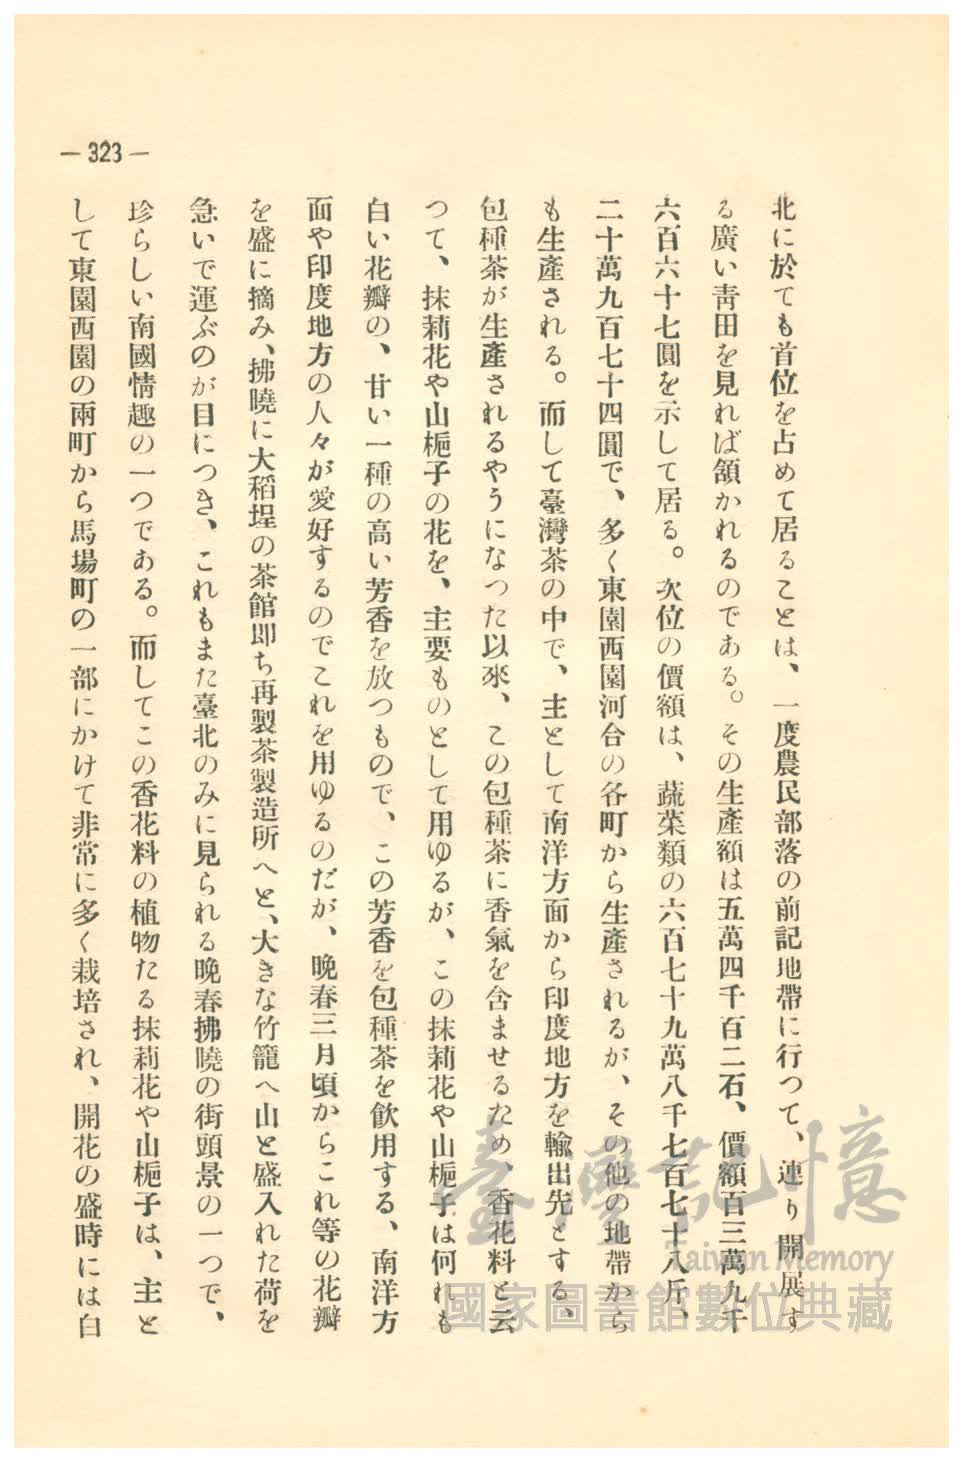 — 323 —
北に於ても首位を占めて居ることは、一度農民部落の前記地帶に行つて、連り開展す
る廣い靑田を見れば頷かれるのである。その生產額は五萬四千百二石、價額百三萬九千
六百六十七圓を示して居る。次位の價額は、蔬菜類の六百七十九萬八千七百七十八斤、
二十萬九百七十四圓で、多く東園西園河合の各町から生產されるが、その他の地帶から
も生產される。而して臺灣茶の中で、主として南洋方面から印度地方を輸出先とする、
包種茶が生產されるやうになつた以來、この包種茶に香氣を含ませるため、香花料と云
つて、抹莉花や山梔子の花を、主要ものとして用ゆるが、この抹莉花や山梔子は何れも
白い花瓣の、甘い一種の高い芳香を放つもので、この芳香を包種茶を飮用する、南洋方
面や印度地方の人々が愛好するのでこれを用ゆるのだが、晚春三月頃からこれ等の花瓣
を盛に摘み、拂曉に大稻埕の茶館卽ち再製茶製造所へと、大きな竹籠へ山と盛入れた荷を
急いで運ぶのが目につき、これもまた臺北のみに見られる晚春拂曉の街頭景の一つで、
珍らしい南國情趣の一つである。而してこの香花料の植物たる抹莉花や山梔子は、主と
して東園西園の兩町から馬場町の一部にかけて非常に多く栽培され、開花の盛時には白
臺灣記憶
Taiwan Memory
國家圖書館數位典藏